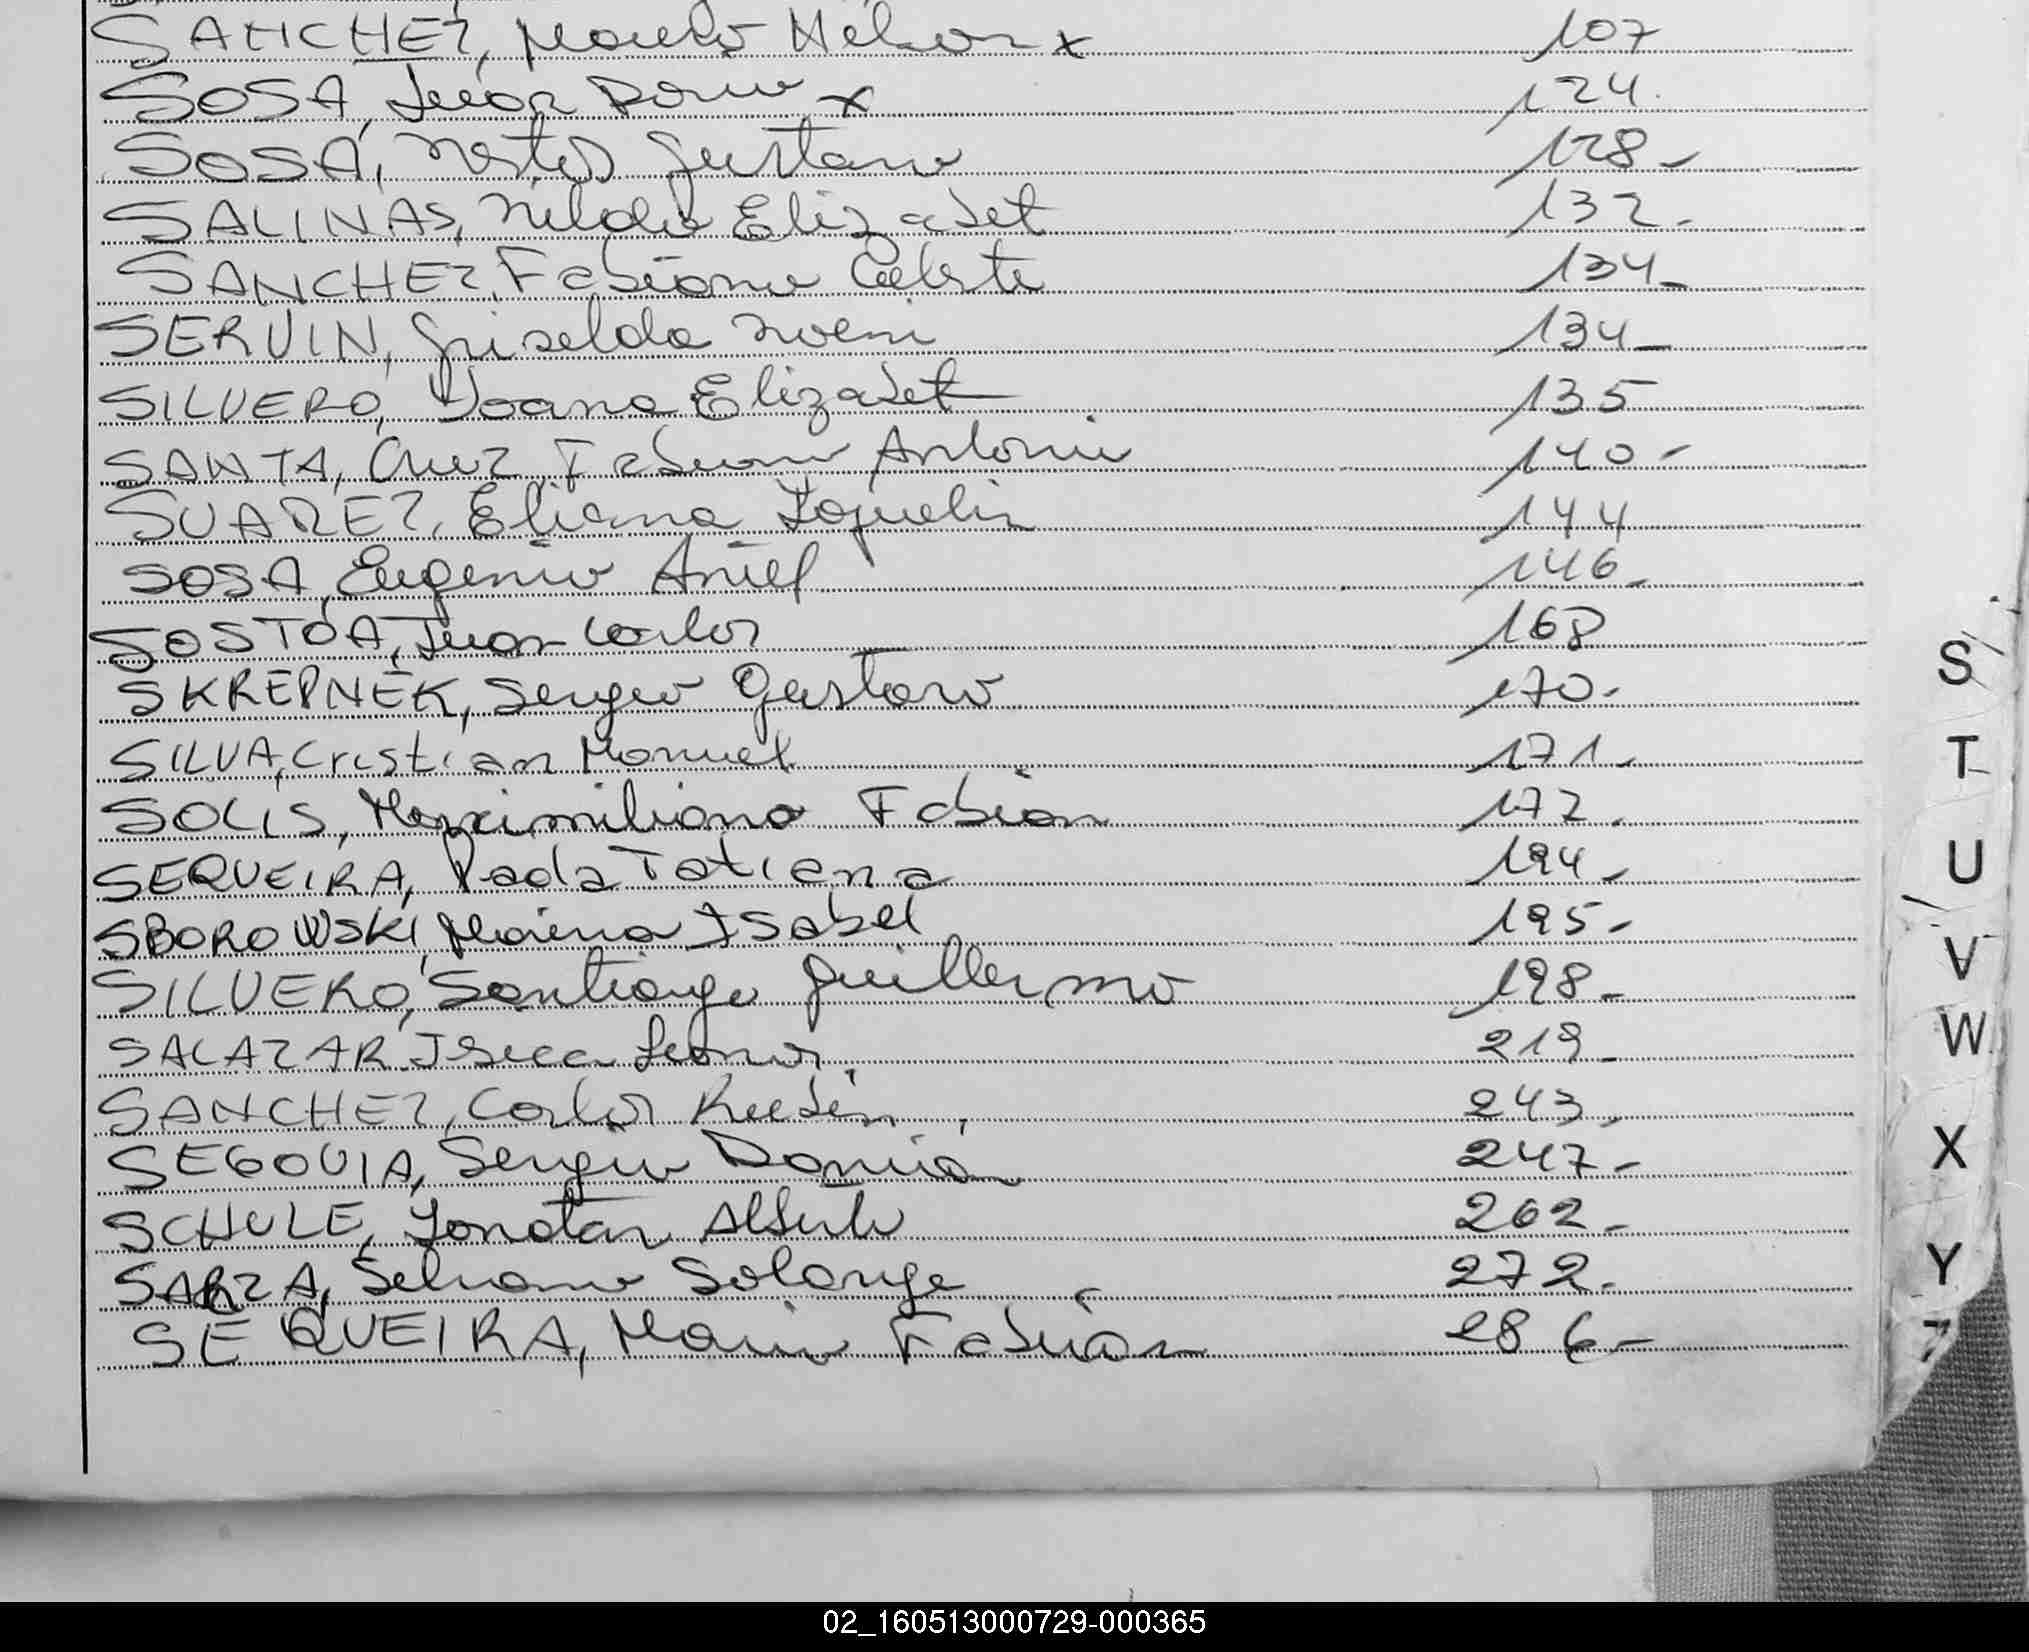 SANCHEZ, Nelson x 107
SOSA, Juan Dario x 124.
SOSA, Nestor Gustavo 128-
SALINAS, Nelida Elizabet 132-
SANCHEZ, Fabiana Celeste 134-
SERVIN, Griselda Noemi 134-
SILVERO, Yoana Elizabet 135
SANTA, Cruz Fabian Antonio 140-
SUAREZ, Eliana 144
SOSA, Eugenio Ariel 146-
SOSTOA, Juan Carlos 168
SKREPNEK, Sergio Gustavo 170-
SILVA, Cristian Manuel 171-
SOLIS, Maximiliano Fabian 172.
SEQUEIRA, Tatiana 194-
SBOROWSKI, Isabel 195-
SILVERO, Santiago Guillermo 198-
SALAZAR 219-
SANCHEZ, Carlos Ruben 243-
SEGOVIA, Sergio Damián 247-
SCHULE, Jonatan Alberto 262-
SARZA, Solange 272.
SEQUEIRA, Mario Fabián 286-
S
T
U
V
W
X
Y
Z
02_160513000729-000365